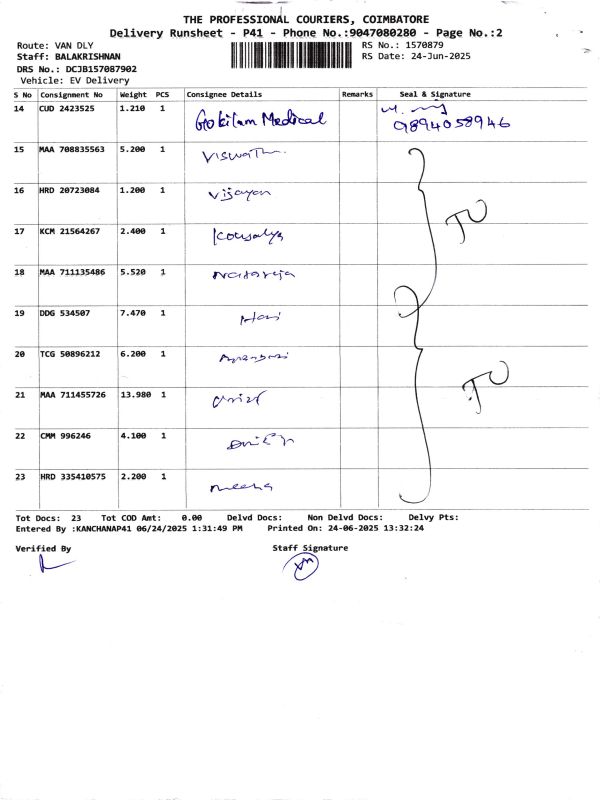 THE PROFESSIONAL COURIERS, COIMBATORE
Delivery Runsheet - P41 - Phone No.:9047080280 - Page No.:2
Route: VAN DLY
RS No.: 1570879
Staff: BALAKRISHNAN
RS Date: 24-Jun-2025
DRS No.: DCJB157087902
Vehicle: EV Delivery
S No Consignment No Weight PCS Consignee Details Remarks Seal & Signature
14 CUD 2423525 1.210 1 Gokilam Medical
9894058946
15 MAA 708835563 5.200 1
16 HRD 20723084 1.200 1 Vijayan
17 KCM 21564267 2.400 1 Kousalya
18 MAA 711135486 5.520 1 Nataraja
19 DDG 534507 7.470 1 Hari
20 TCG 50896212 6.200 1
21 MAA 711455726 13.980 1
22 CMM 996246 4.100 1
23 HRD 335410575 2.200 1 meena
Tot Docs: 23 Tot COD Amt: 0.00 Delvd Docs: Non Delvd Docs: Delvy Pts:
Entered By :KANCHANAP41 06/24/2025 1:31:49 PM Printed On: 24-06-2025 13:32:24
Verified By
Staff Signature